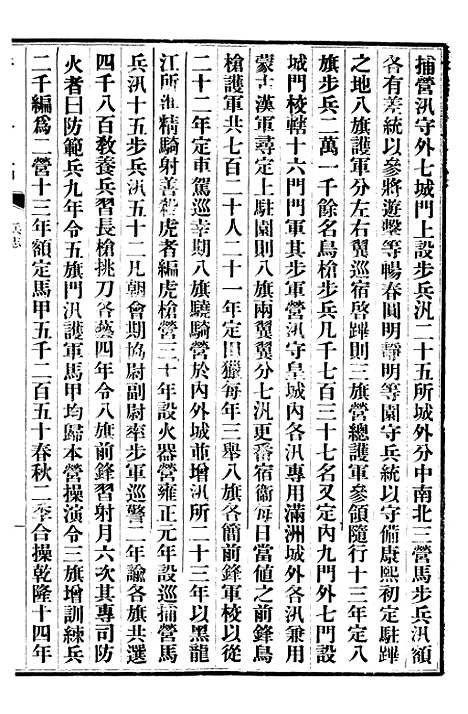 捕營汛守外七城門上設步兵汛二十五所城外分中南北三營馬步兵汛額
各有差統以參將遊擊等暢春圓明靜明等園守兵統以守備康熙初定駐蹕
之地八旗護軍分左右翼巡宿啓蹕則三旗營總護軍參領隨行十三年定八
旗步兵二萬一千餘名鳥槍步兵几千七百三十七名又定内九門外七門設
城門校轄十六門門軍其步軍營汛守皇城内各汛專用滿洲城外各汛兼用
蒙古漢軍尋定上駐園則八旗兩翼翼分七汛更番宿衞每日當値之前鋒鳥
槍護軍共七百二十人二十一年定田獵每年三舉八旗各簡前鋒軍校以從
二十二年定車駕巡幸期八旗驍騎營於内外城並增汛所二十三年以黑龍
江所進精騎射善殺虎者編虎槍營三十年設火器營雍正元年設巡捕營馬
兵汛十五步兵汛五十二凡朝會期協尉副尉率步軍巡警二年諭各旗共選
四千八百敎養兵習長槍挑刀各藝四年令八旗前鋒習射月六次其專司防
火者曰防範兵九年令五旗門汛護軍馬甲均歸本營操演令三旗增訓練兵
二千編爲二營十三年額定馬甲五千二百五十春秋二季合操乾隆十四年
兵志